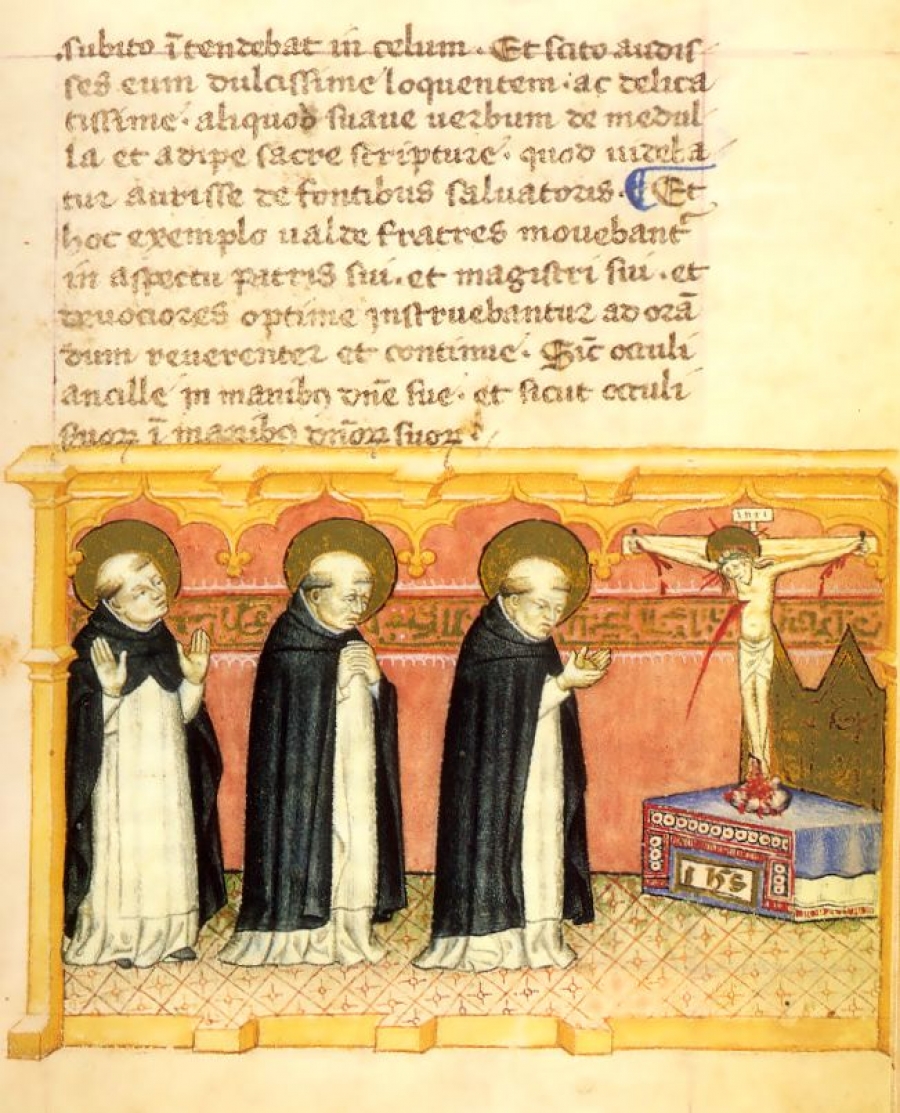 subito ītendebat in celum. Et scito audis
ses eum dulcissime loquentem. ac delica
tissime. aliquod suaue uerbum de medul
la et adipe sacre scripture. quod uideba
tur aurisse de fontibus saluatoris. Et
hoc exemplo ualde fratres mouebant᷑
in aspectu patris sui. et magistri sui. et
deuociores optime instruebantur ad orā
dum reuerenter et continue. Sic̄ occuli
ancille in manibꝯ dn̄e sue. et sicut occuli
suoꝝ ī manibꝯ dn̄oꝝ suoꝝ.
INRI
Ihs